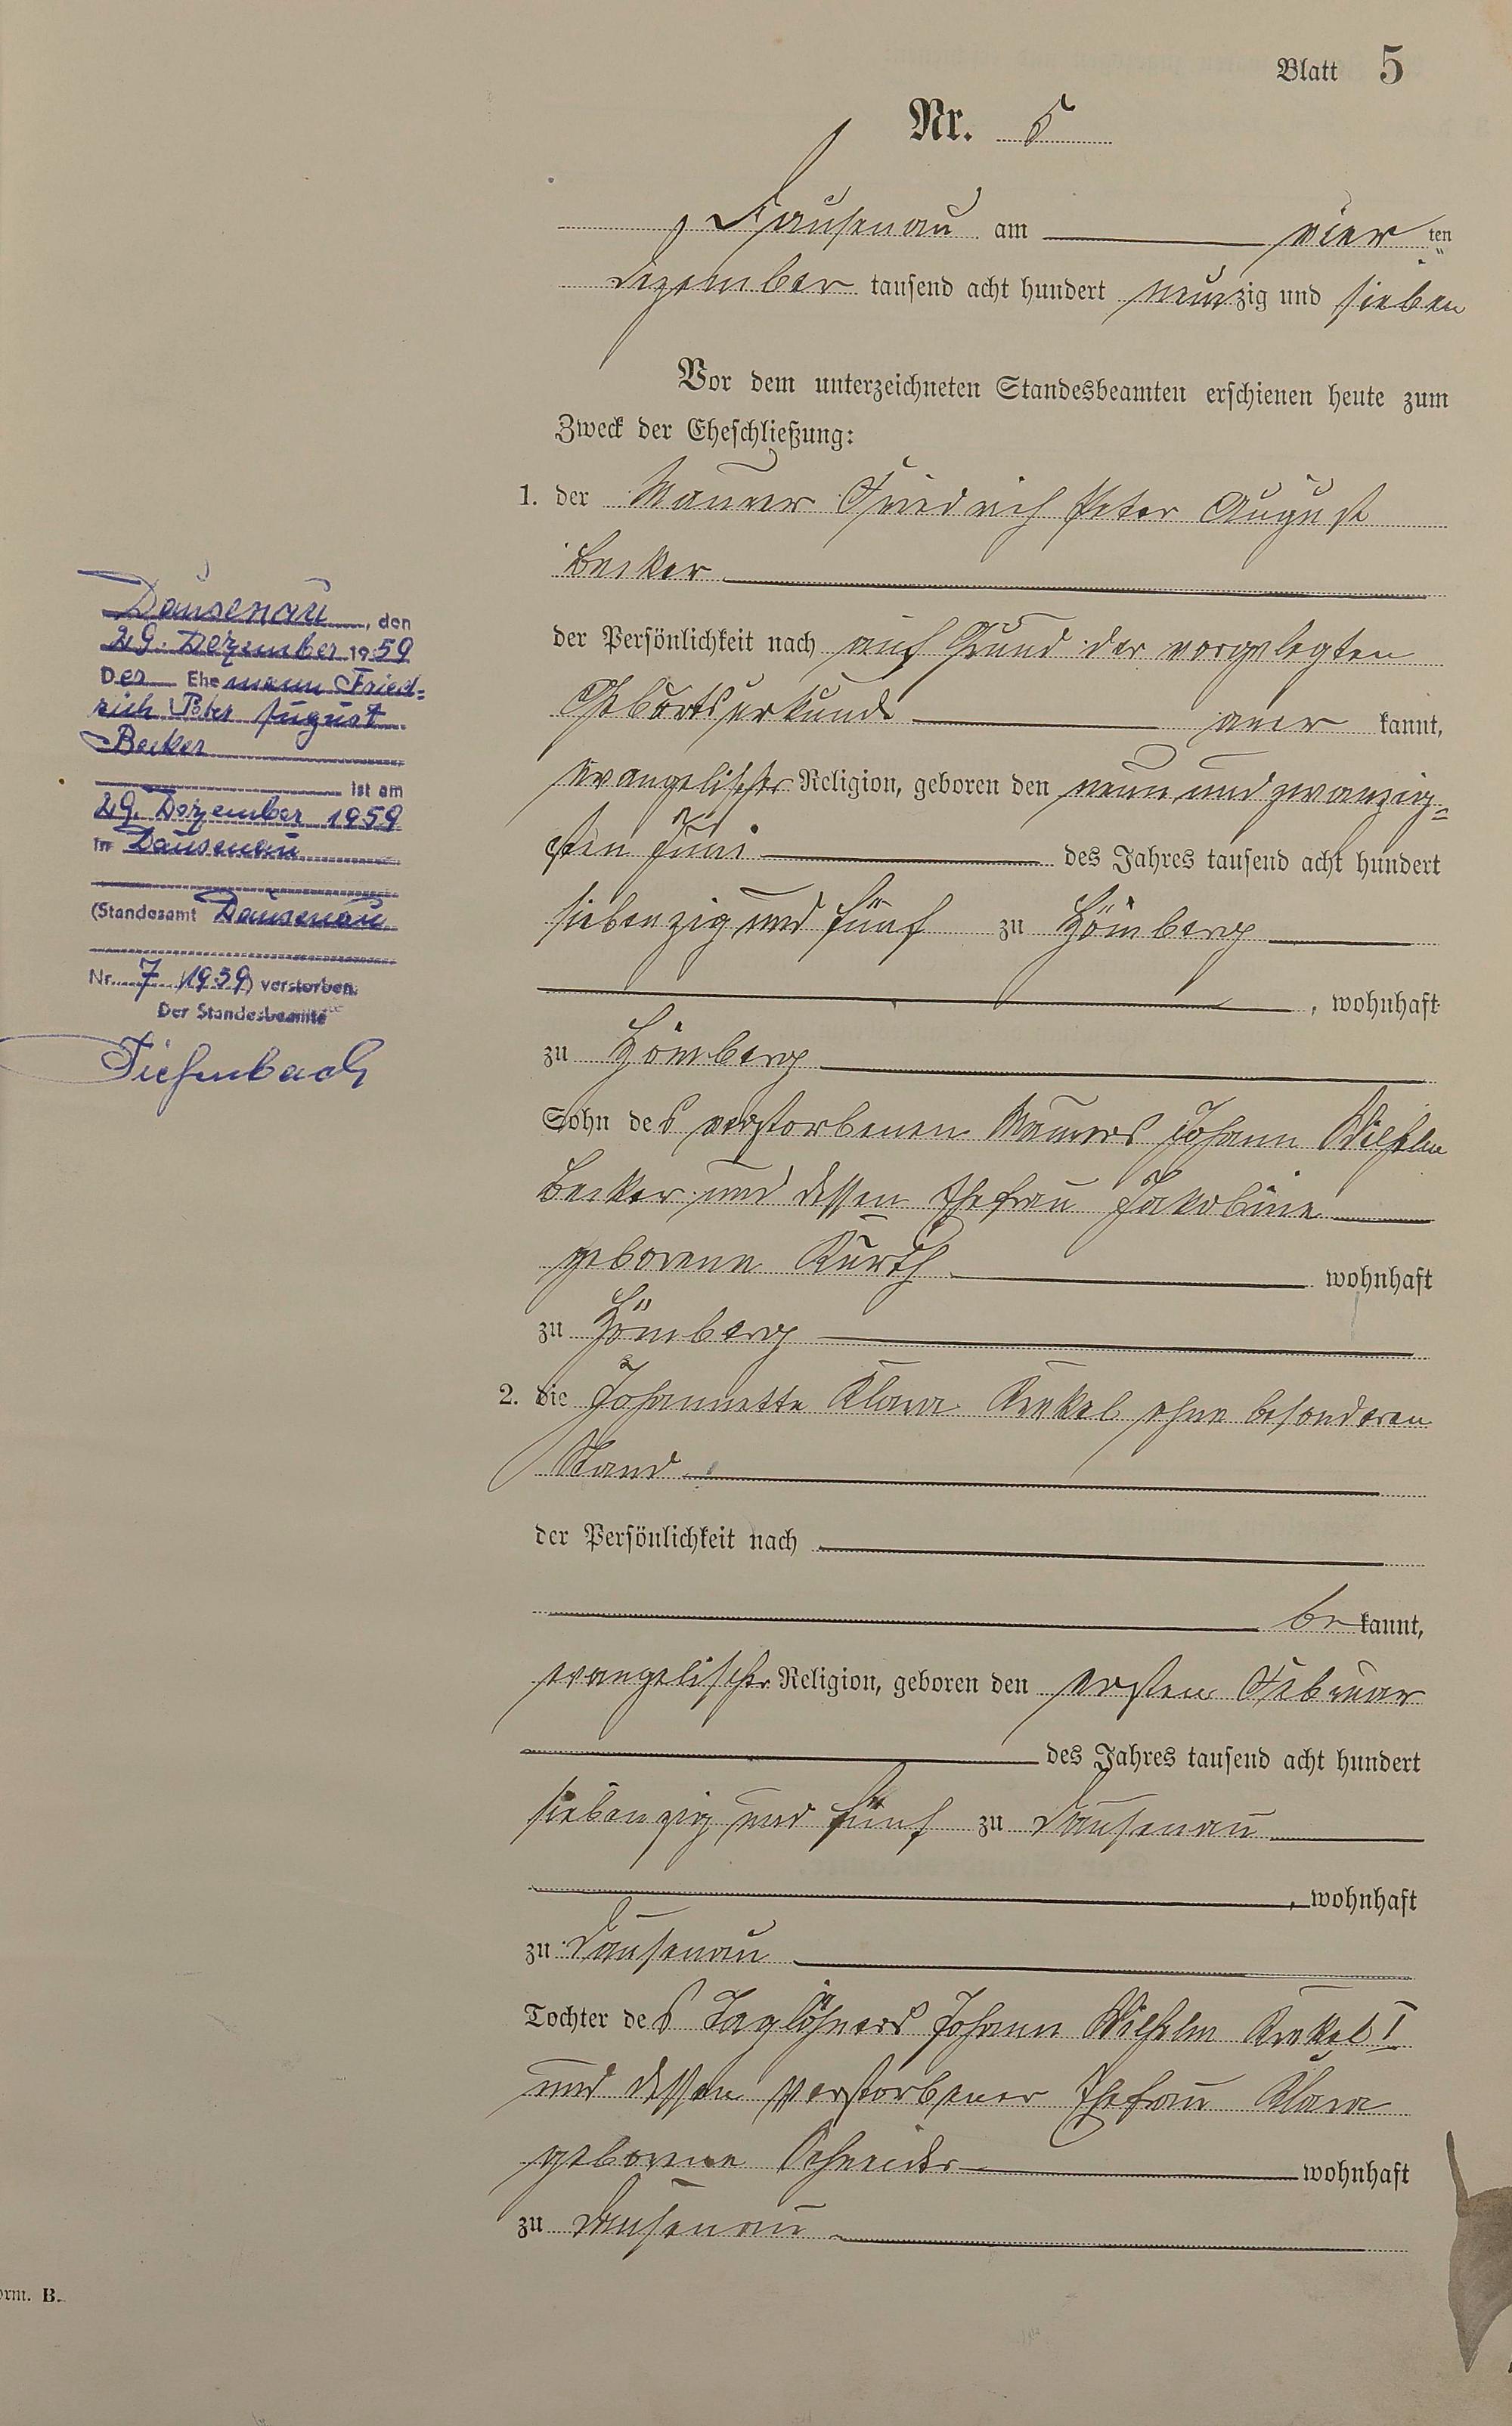 Blatt 5
Nr. 5
Dausenau am vier ten
Dezember tausend acht hundert neunzig und sieben
Vor dem unterzeichneten Standesbeamten erschienen heute zum
Zweck der Eheschließung:
1. der Maurer Friedrich Peter August
Becker
der Persönlichkeit nach auf Grund der vorgelegten
Geburtsurkunde aner kannt,
evangelischer Religion, geboren den neun und zwanzig-
sten Juni des Jahres tausend acht hundert
siebenzig und fünf zu Hömberg
, wohnhaft
zu Hömberg
Sohn des verstorbenen Maurers Johann Wilhelm
Becker und dessen Ehefrau Jakobine
geborene Kurth wohnhaft
zu Hömberg
2. die Johannette Klara Krekel ohne besonderen
Stand
der Persönlichkeit nach
be kannt,
evangelischer Religion, geboren den ersten Februar
des Jahres tausend acht hundert
siebenzig und fünf zu Dausenau
, wohnhaft
zu Dausenau
Tochter des Taglöhners Johann Wilhelm Krekel I
und dessen verstorbener Ehefrau Klara
geborene Schneider wohnhaft
zu Dausenau
Dausenau, den
29. Dezember 1959
Der Ehemann Fried-
rich Peter August
Becker
ist am
29. Dezember 1959
in Dausenau
(Standesamt Dausenau
Nr. 7 1959) verstorben.
Der Standesbeamte
Tiefenbach
orm. B.